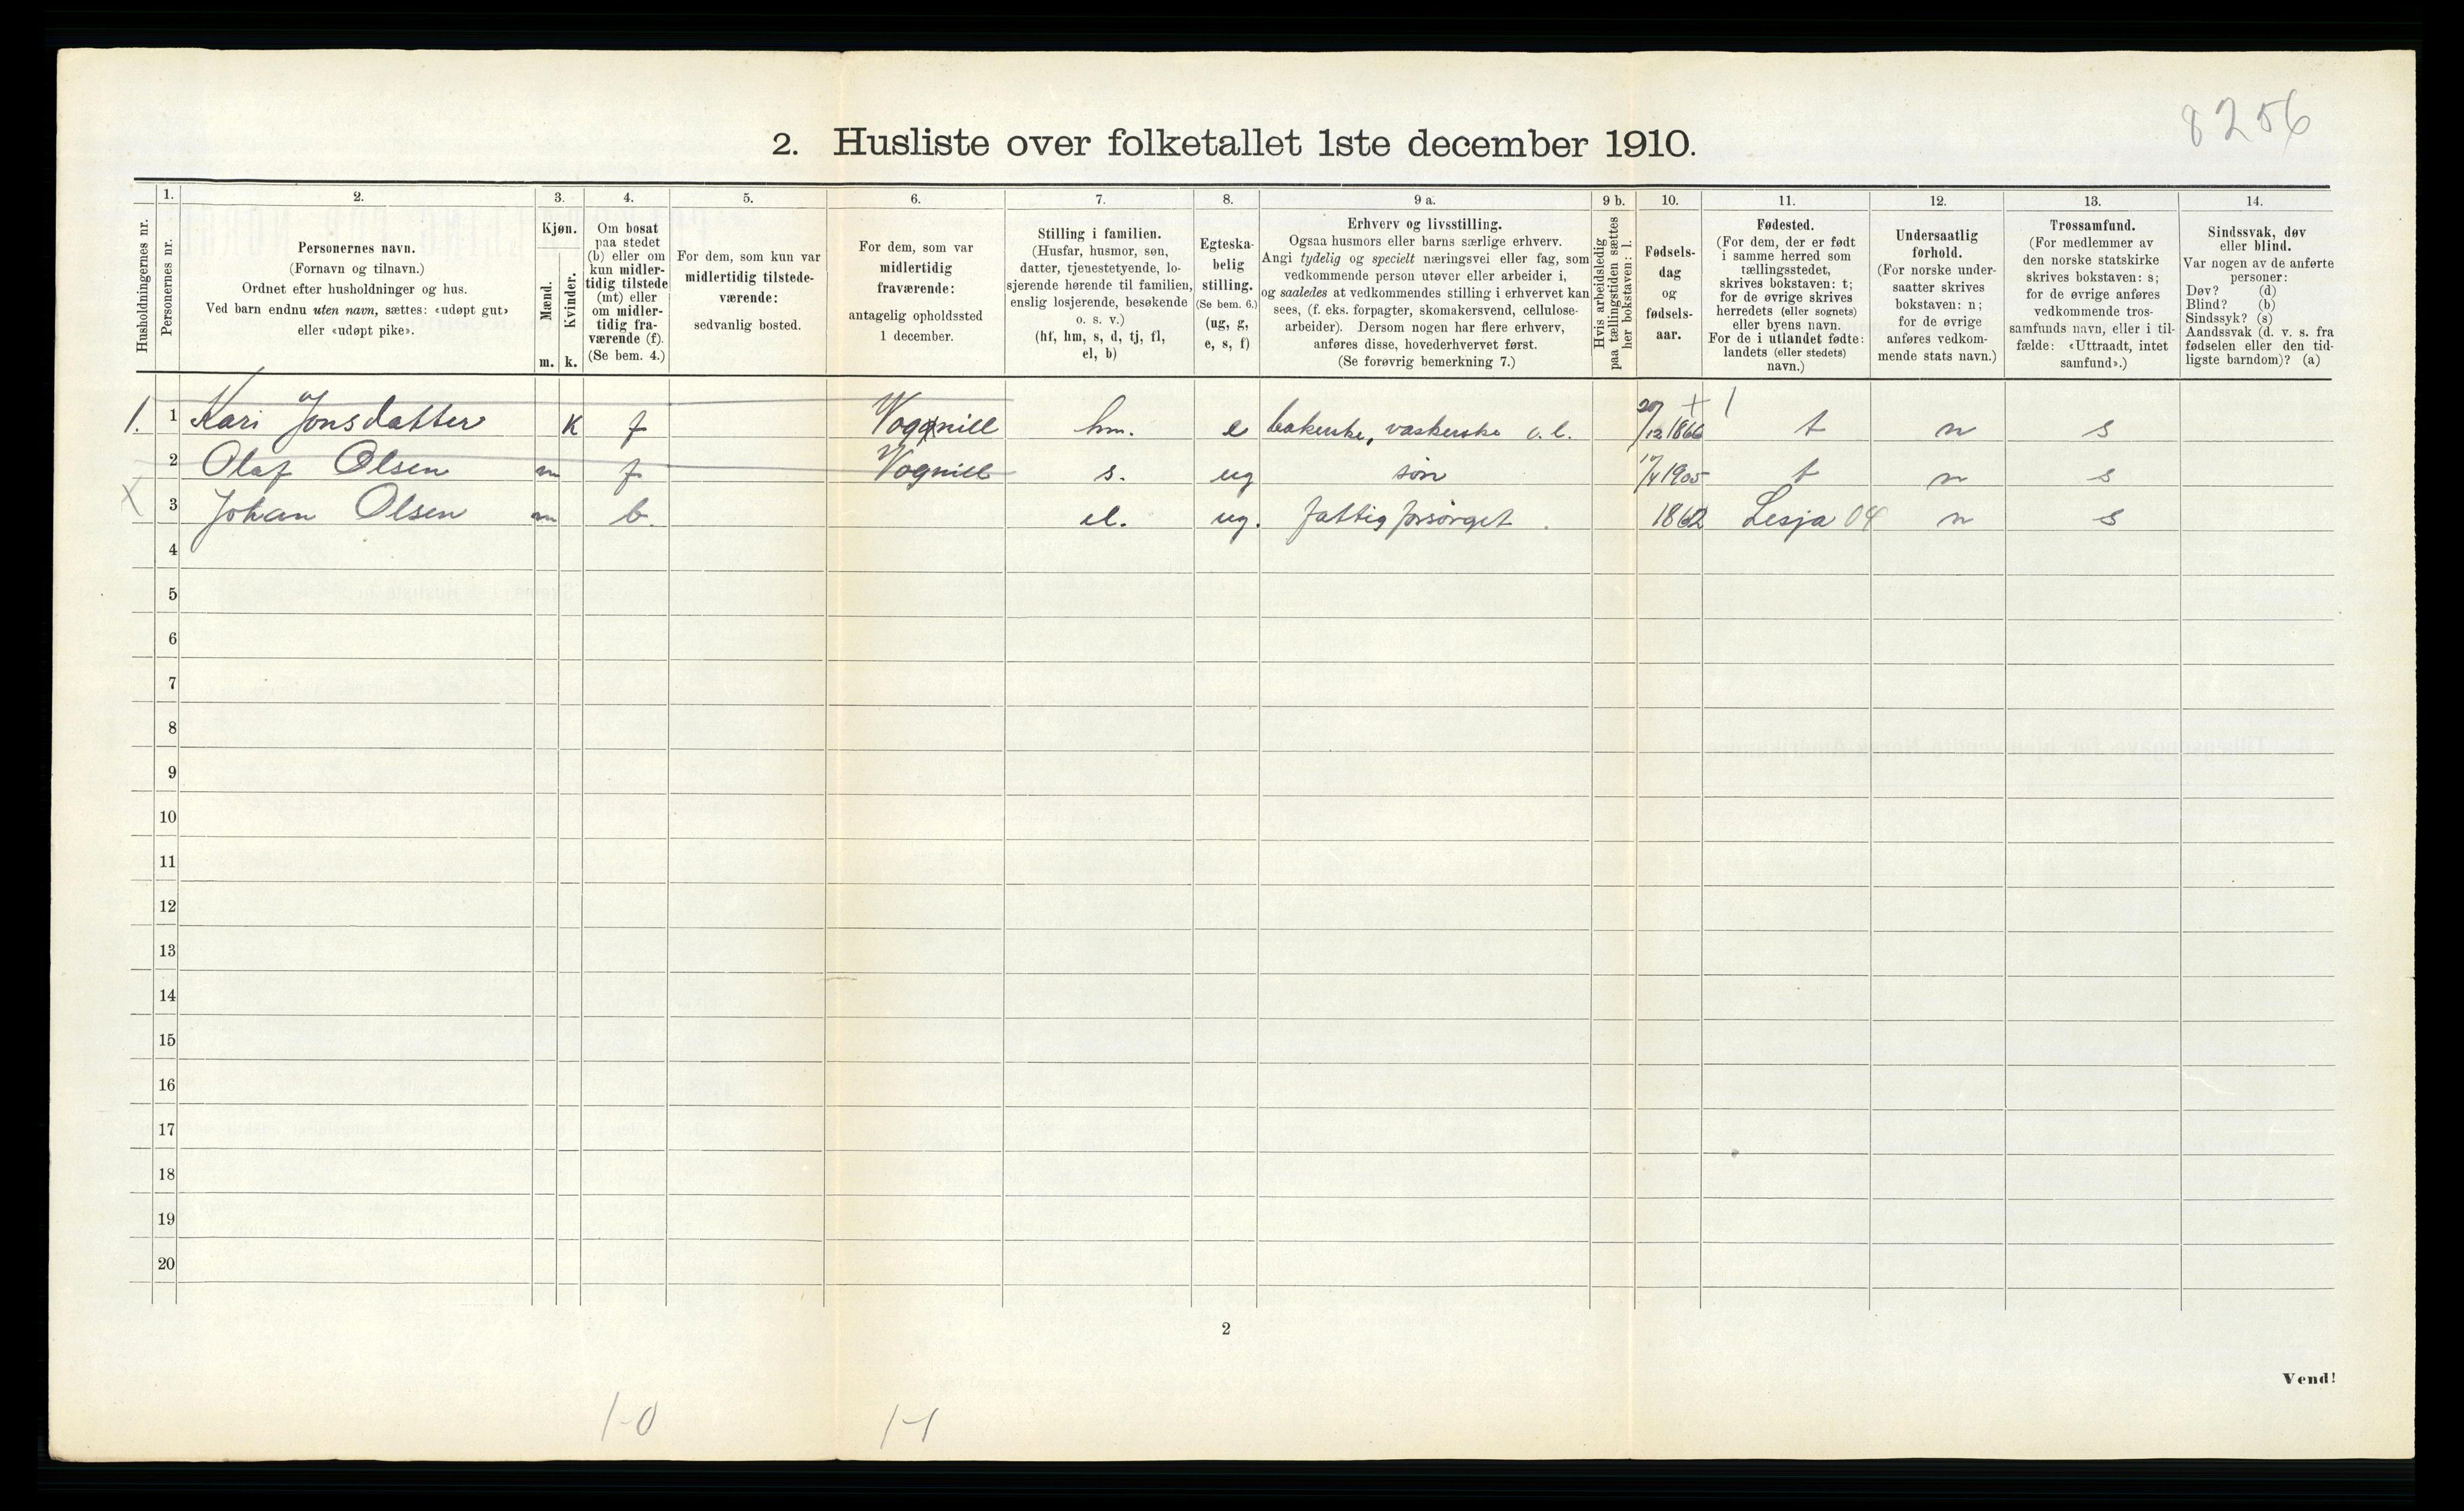 8256
2. Husliste over folketallet 1ste december 1910.
Husholdningernes nr.
1.
Personernes nr.
2.
Personernes navn.
(Fornavn og tilnavn.)
Ordnet efter husholdninger og hus.
Ved barn endnu uten navn, sættes: «udøpt gut»
eller «udøpt pike».
3.
Kjøn.
Mænd.
Kvinder.
m. k.
4.
Om bosat
paa stedet
(b) eller om
kun midler-
tidig tilstede
(mt) eller
om midler-
tidig fra-
værende (f).
(Se bem. 4.)
5.
For dem, som kun var
midlertidig tilstede-
værende:
sedvanlig bosted.
6.
For dem, som var
midlertidig
fraværende:
antagelig opholdssted
1 december.
7.
Stilling i familien.
(Husfar, husmor, søn,
datter, tjenestetyende, lo-
sjerende hørende til familien,
enslig losjerende, besøkende
o. s. v.)
(hf, hm, s, d, tj, fl,
el, b)
8.
Egteska-
belig
stilling.
(Se bem. 6.)
(ug, g,
e, s, f)
9 a.
Erhverv og livsstilling.
Ogsaa husmors eller barns særlige erhverv.
Angi tydelig og specielt næringsvei eller fag, som
vedkommende person utøver eller arbeider i,
og saaledes at vedkommendes stilling i erhvervet kan
sees, (f. eks. forpagter, skomakersvend, cellulose-
arbeider). Dersom nogen har flere erhverv,
anføres disse, hovederhvervet først.
(Se forøvrig bemerkning 7.)
9 b.
Hvis arbeidsledig
paa tællingstiden sættes
her bokstaven: l.
10.
Fødsels-
dag
og
fødsels-
aar.
11.
Fødested.
(For dem, der er født
i samme herred som
tællingsstedet,
skrives bokstaven: t;
for de øvrige skrives
herredets (eller sognets)
eller byens navn.
For de i utlandet fødte:
landets (eller stedets)
navn.)
12.
Undersaatlig
forhold.
(For norske under-
saatter skrives
bokstaven: n;
for de øvrige
anføres vedkom-
mende stats navn.)
13.
Trossamfund.
(For medlemmer av
den norske statskirke
skrives bokstaven: s;
for de øvrige anføres
vedkommende tros-
samfunds navn, eller i til-
fælde: «Uttraadt, intet
samfund».)
14.
Sindssvak, døv
eller blind.
Var nogen av de anførte
personer:
Døv? (d)
Blind? (b)
Sindssyk? (s)
Aandssvak (d. v. s. fra
fødselen eller den tid-
ligste barndom)? (a)
1. 1 Kari Jonsdatter k f hm. e bakerske, vaskerske o. l. 20/12 1866 t n s
2 Olaf Olsen m f Vognill s. ug søn 1905 t n s
X 3 Johan Olsen m b. el. ug. fattigforsørget. 1862 Lesja 04 n s
4
5
6
7
8
9
10
11
12
13
14
15
16
17
18
19
20
2
Vend!
1-0 1-1